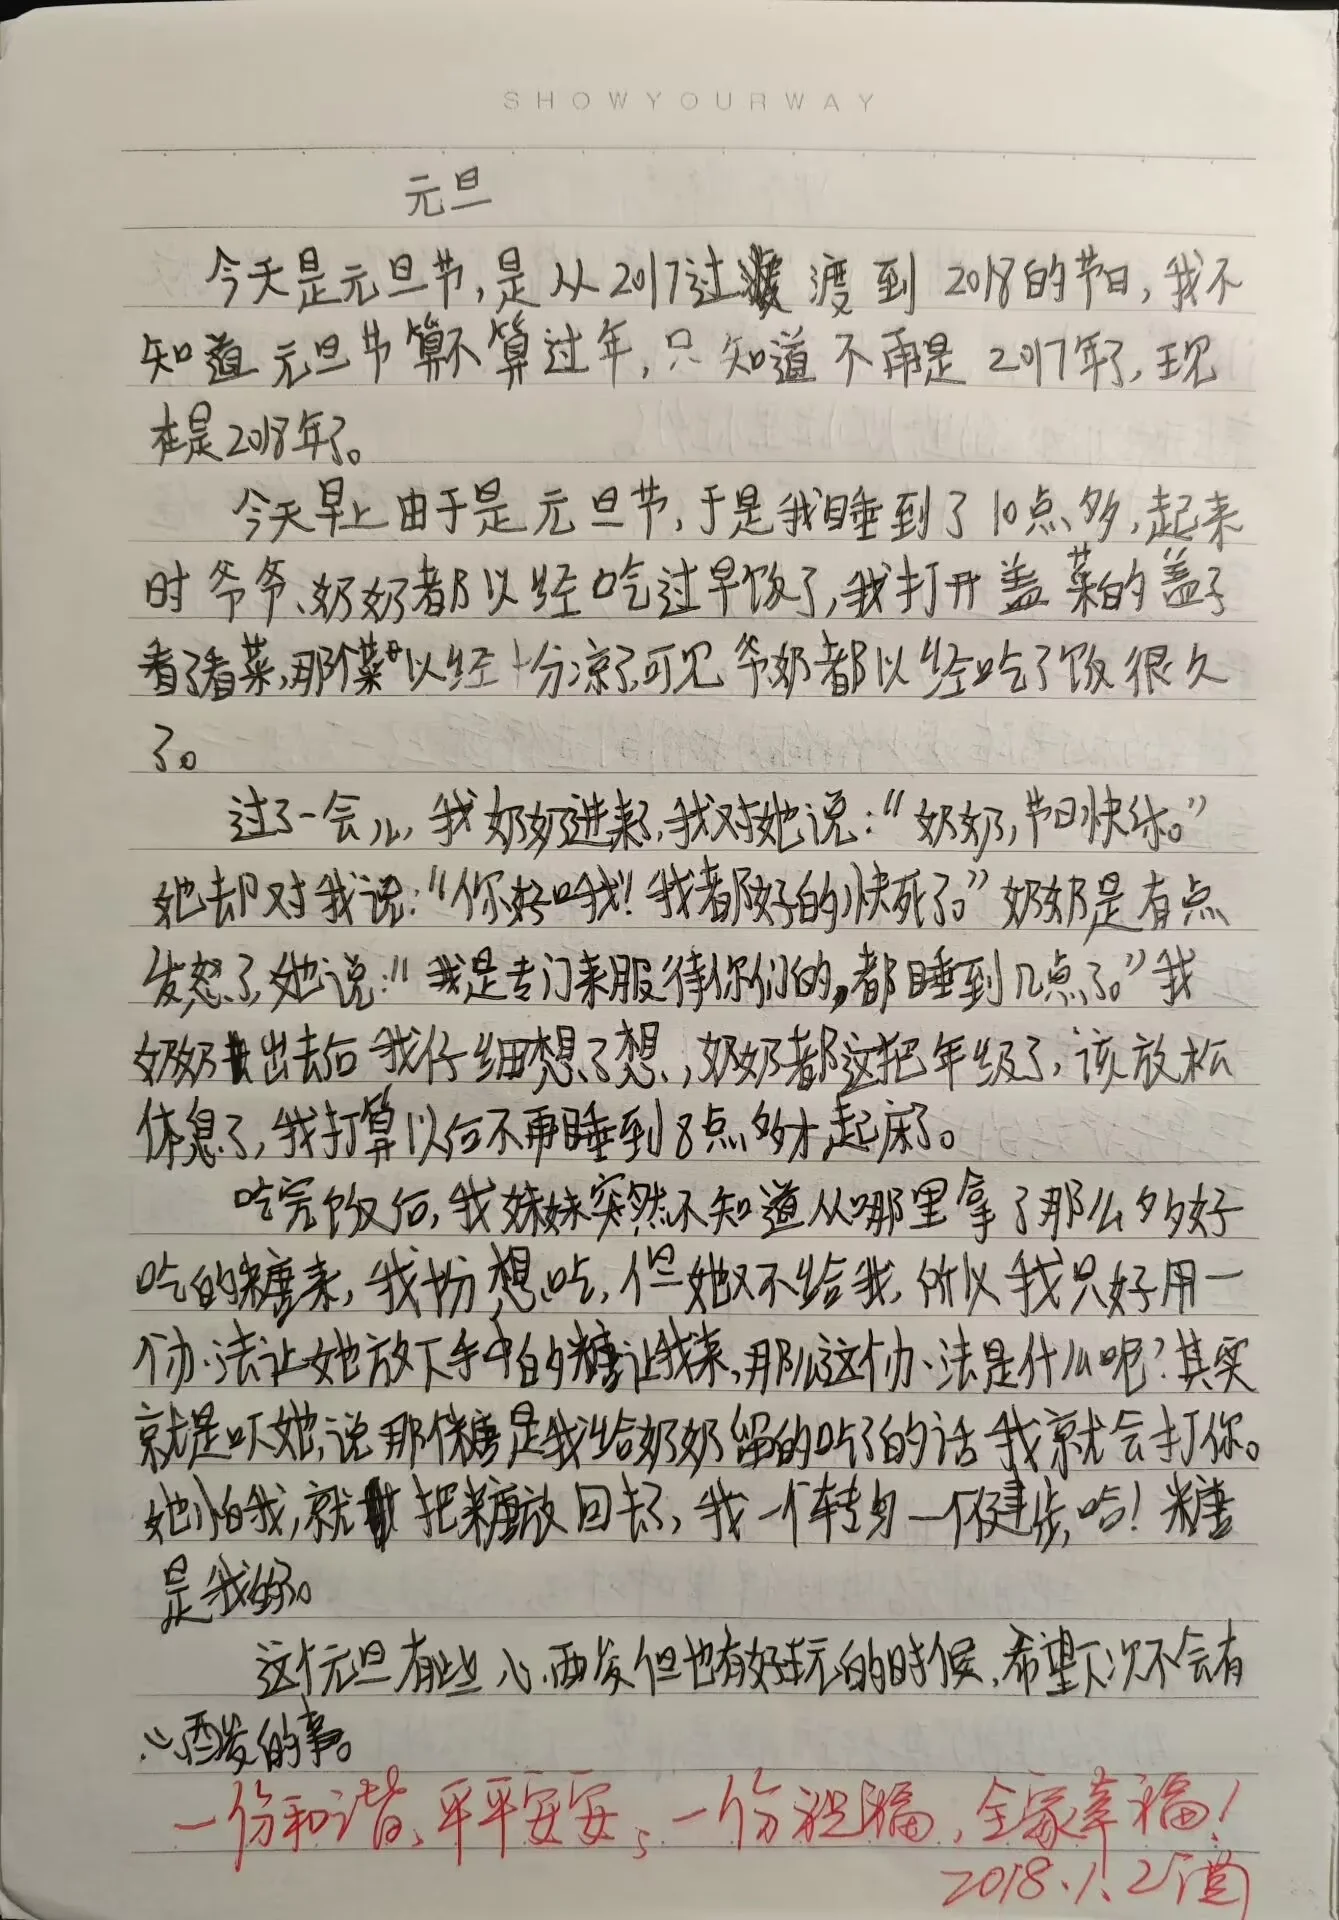 SHOWYOURWAY
元旦
今天是元旦节,是从2017过渡到2018的节日,我不
知道元旦节算不算过年,只知道不再是2017年了,现
在是2018年了。
今天早上由于是元旦节,于是我睡到了10点多,起来
时爷爷、奶奶都以经吃过早饭了,我打开盖菜的盖子
看了看菜,那个菜以经十分凉了可见爷奶都以经吃了饭很久
了。
过了一会儿,我奶奶进来了,我对她说:“奶奶,节日快乐。”
她却对我说:“你好哦!我都好的快死了。”奶奶是有点
发怒了,她说:“我是专门来服待你们的,都睡到几点了。”我
奶奶出去后我仔细想了想,奶奶都这把年级了,该放松
休息了,我打算以后不再睡到8点多才起床了。
吃完饭后,我妹妹突然不知道从哪里拿了那么多好
吃的糖来,我扮想吃,但她又不给我,所以我只好用一
个办法让她放下手中的糖让我来,那么这个办法是什么呢?其实
就是吓她,说那个糖是我给奶奶留的吃了的话我就会打你。
她怕我,就把糖放回去了,我一个转身一个健步,哈!糖
是我的了。
这个元旦有些心酉发但也有好玩的时候,希望下次不会有
心酉发的事。
一份和谐、平平安安,一份祝福,全家幸福!
2018.1.2阅